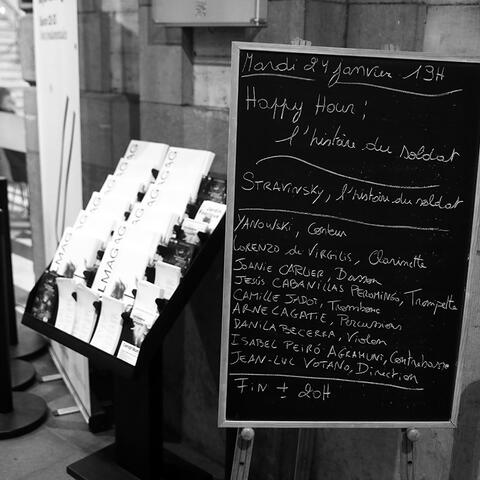 Mardi 24 janvier 19H
Happy Hour;
l'histoire du soldat
STRAVINSKY, l'histoire du soldat
YANOWSKI, Conteur
LORENZO de VIRGILIS, Clarinette
JOANIE CARLIER, Basson
JESÚS CABANILLAS PEROMINGO, Trompette
CAMILLE JADOT, Trombone
ARNE LAGATIE, Percussion
DANILA BECERRA, Violon
ISABEL PEIRÓ AGRAMUNT, Contrebasse
JEAN-LUC VOTANO, Direction
FIN ± 20H
LMAGAG